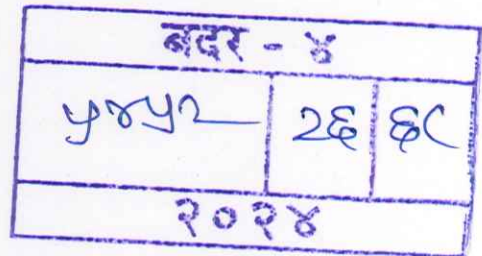 बदर - ४
५४५२ २६ ६८
२०२४